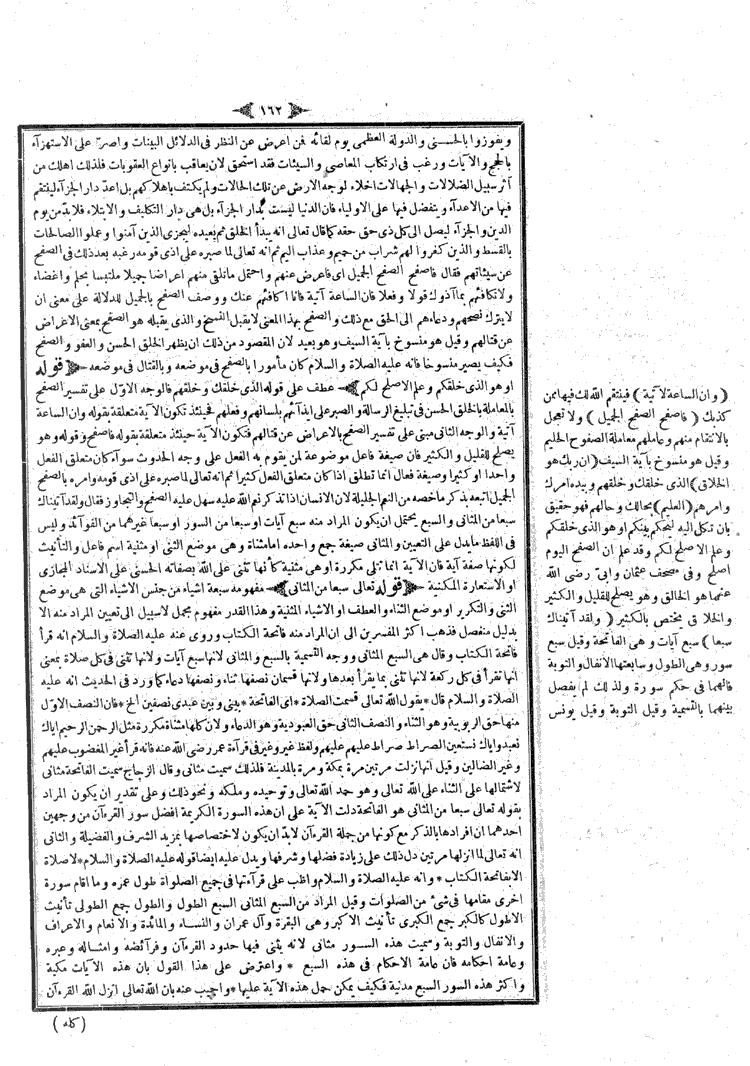 ﴿ ١٦٢ ﴾
ويفوزوا بالحسنى والدولة العظمى يوم لقائه فمن اعرض عن النظر فى الدلائل البينات واصر على الاستهزآء
بالحجج والآيات ورغب فى ارتكاب المعاصى والسيئات فقد استحق لان يعاقب بانواع العقوبات فلذلك اهلك من
آثر سبيل الضلالات والجهالات اخلاء لوجه الارض عن تلك الحالات ولم يكتف باهلاكهم بل اعد دار الجزآء لينتقم
فيها من الاعدآء ويتفضل فيها على الاولياء فان الدنيا ليست بدار الجزآء بل هى دار التكليف والابتلاء فلابد من يوم
الدين والجزآء ليصل الى كل ذى حق حقه كما قال تعالى انه يبدأ الخلق ثم يعيده ليجزى الذين آمنوا وعملوا الصالحات
بالقسط والذين كفروا لهم شراب من حميم وعذاب اليم ثم انه تعالى لما صبره على اذى قومه رغبه بعد ذلك فى الصفح
عن سيئاتهم فقال فاصفح الصفح الجميل اى فاعرض عنهم واحتمل ماتلقى منهم اعراضا جميلا ملتبسا بحلم واغضاء
ولاتكافئهم بما آذوك قولا وفعلا فان الساعة آتية فانا اكافئهم عنك ووصف الصفح بالجميل للدلالة على معنى ان
لايترك نصحهم ودعاءهم الى الحق مع ذلك والصفح بهذا المعنى لايقبل النسخ والذى يقبله هو الصفح بمعنى الاعراض
عن قتالهم وقيل هو منسوخ بآية السيف وهو بعيد لان المقصود من ذلك ان يظهر الخلق الحسن والعفو والصفح
فكيف يصير منسوخا فانه عليه الصلاة والسلام كان مأمورا بالصفح فى موضعه وبالقتال فى موضعه ﴿ قوله
او هو الذى خلقكم وعلم الاصلح لكم ﴾ عطف على قوله الذى خلقك وخلقهم فالوجه الاول على تفسير الصفح
بالمعاملة بالخلق الحسن فى تبليغ الرسالة والصبر على ايذآئهم بلسانهم وفعلهم فحينئذ تكون الآية متعلقة بقوله وان الساعة
آتية والوجه الثانى مبنى على تفسير الصفح بالاعراض عن قتالهم فتكون الآية حينئذ متعلقة بقوله فاصفح قوله وهو
يصلح للقليل والكثير فان صيغة فاعل موضوعة لمن يقوم به الفعل على وجه الحدوث سوآء كان متعلق الفعل
واحدا او كثيرا وصيغة فعال انما تطلق اذا كان متعلق الفعل كثيرا ثم انه تعالى لما صبره على اذى قومه وامره بالصفح
الجميل اتبعه بذكر ماخصه من النعم الجليلة لان الانسان اذا تذكر نعم الله عليه سهل عليه الصفح والتجاوز فقال ولقد آتيناك
سبعا من المثانى والسبع يحتمل ان يكون المراد منه سبع آيات او سبعا من السور او سبعا غيرهما من الفوآئد وليس
فى اللفظ مايدل على التعيين والمثانى صيغة جمع واحده اما مثناة وهى موضع الثنى او مثنية اسم فاعل والتأنيث
لكونها صفة آية فان الآية انما تثنى مكررة او هى مثنية كأنها تثنى على الله بصفاته الحسنى على الاسناد المجازى
او الاستعارة المكنية ﴿ قوله تعالى سبعا من المثانى ﴾ مفهومه سبعة اشياء من جنس الاشياء التى هى موضع
الثنى والتكرير او موضع الثناء والعطف او الاشياء المثنية وهذا القدر مفهوم مجمل لاسبيل الى تعيين المراد منه الا
بدليل منفصل فذهب اكثر المفسرين الى ان المراد منه فاتحة الكتاب وروى عنه عليه الصلاة والسلام انه قرأ
فاتحة الكتاب وقال هى السبع المثانى ووجه التسمية بالسبع والمثانى لانها سبع آيات ولانها تثنى فى كل صلاة بمعنى
انها تقرأ فى كل ركعة لانها تثنى بما يقرأ بعدها ولانها قسمان نصفها ثناء ونصفها دعاء كما ورد فى الحديث انه عليه
الصلاة والسلام قال * يقول الله تعالى قسمت الصلاة * اى الفاتحة * بينى وبين عبدى نصفين الخ * فان النصف الاول
منها حق الربوبية وهو الثناء والنصف الثانى حق العبودية وهو الدعاء ولان كلها مثناة مكررة مثل الرحمن الرحيم اياك
نعبد واياك نستعين الصراط صراط عليهم عليهم ولفظ غير وغير فى قرآءة عمر رضى الله عنه فانه قرأ غير المغضوب عليهم
وغير الضالين وقيل انها نزلت مرتين مرة بمكة ومرة بالمدينة فلذلك سميت مثانى وقال الزجاج سميت الفاتحة مثانى
لاشتمالها على الثناء على الله تعالى وهو حمد الله تعالى وتوحيده وملكه ونحو ذلك وعلى تقدير ان يكون المراد
بقوله تعالى سبعا من المثانى هو الفاتحة دلت الآية على ان هذه السورة الكريمة افضل سور القرءآن من وجهين
احدهما ان افرادها بالذكر مع كونها من جملة القرءآن لابد ان يكون لاختصاصها بمزيد الشرف والفضيلة والثانى
انه تعالى لما انزلها مرتين دل ذلك على زيادة فضلها وشرفها ويدل عليه ايضا قوله عليه الصلاة والسلام * لاصلاة
الا بفاتحة الكتاب * وانه عليه الصلاة والسلام واظب على قرآءتها فى جميع الصلوات طول عمره وما اقام سورة
اخرى مقامها فى شئ من الصلوات وقيل المراد من السبع المثانى السبع الطول والطول جمع الطولى تأنيث
الاطول كالكبر جمع الكبرى تأنيث الاكبر وهى البقرة وآل عمران والنساء والمائدة والانعام والاعراف
والانفال والتوبة وسميت هذه السور مثانى لانه يثنى فيها حدود القرءآن وفرآئضه وامثاله وعبره
وعامة احكامه فان عامة الاحكام فى هذه السبع * واعترض على هذا القول بان هذه الآيات مكية
واكثر هذه السور السبع مدنية فكيف يمكن حمل هذه الآية عليها * واجيب عنه بان الله تعالى انزل القرءآن
( كله )
( وان الساعة لآتية ) فينتقم الله لك فيها ممن
كذبك ( فاصفح الصفح الجميل ) ولا تعجل
بالانتقام منهم وعاملهم معاملة الصفوح الحليم
وقيل هو منسوخ بآية السيف ( ان ربك هو
الخلاق ) الذى خلقك وخلقهم وبيده امرك
وامرهم ( العليم ) بحالك وحالهم فهو حقيق
بان تكل اليه ليحكم بينكم او هو الذى خلقكم
وعلم الاصلح لكم وقد علم ان الصفح اليوم
اصلح وفى مصحف عثمان وابىّ رضى الله
عنهما هو الخالق وهو يصلح للقليل والكثير
والخلاق يختص بالكثير ( ولقد آتيناك
سبعا ) سبع آيات وهى الفاتحة وقيل سبع
سور وهى الطول وسابعتها الانفال والتوبة
فانهما فى حكم سورة ولذلك لم يفصل
بينهما بالتسمية وقيل التوبة وقيل يونس